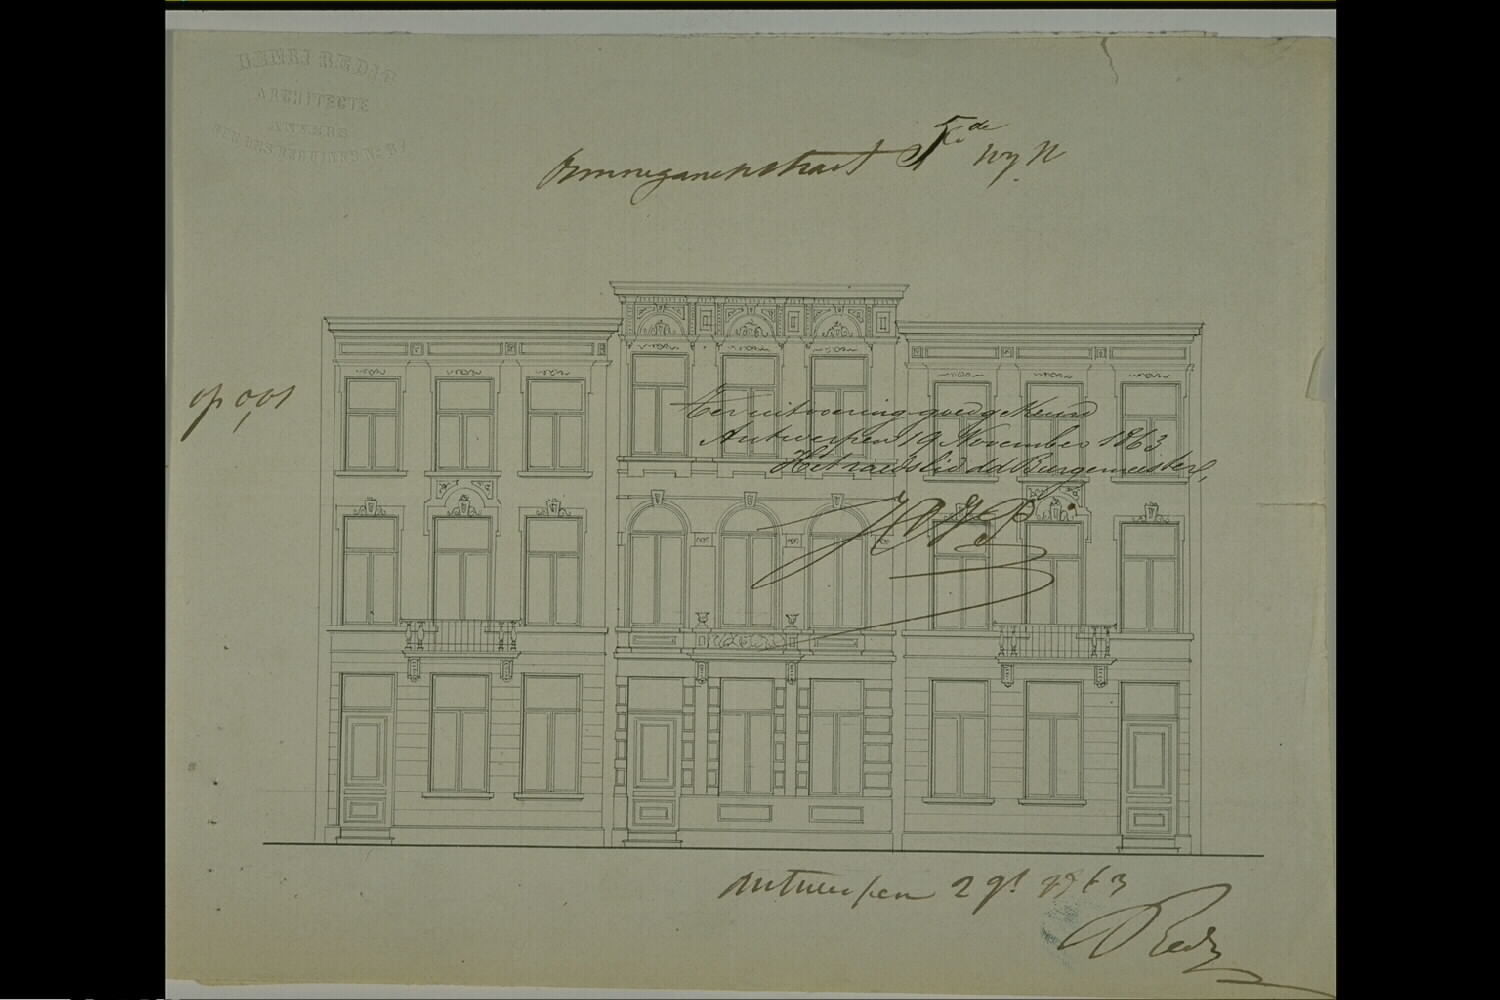 HENRI REDIG
ARCHITECTE
ANVERS
RUE DES BEGUINES No
Ommeganckstraat 5de wyk
op 0,01
Ter uitvoering goedgekeurd
Antwerpen 19 November 1863
Het raadslid dd Burgemeester,
Antwerpen 2 9b 1863
Redig